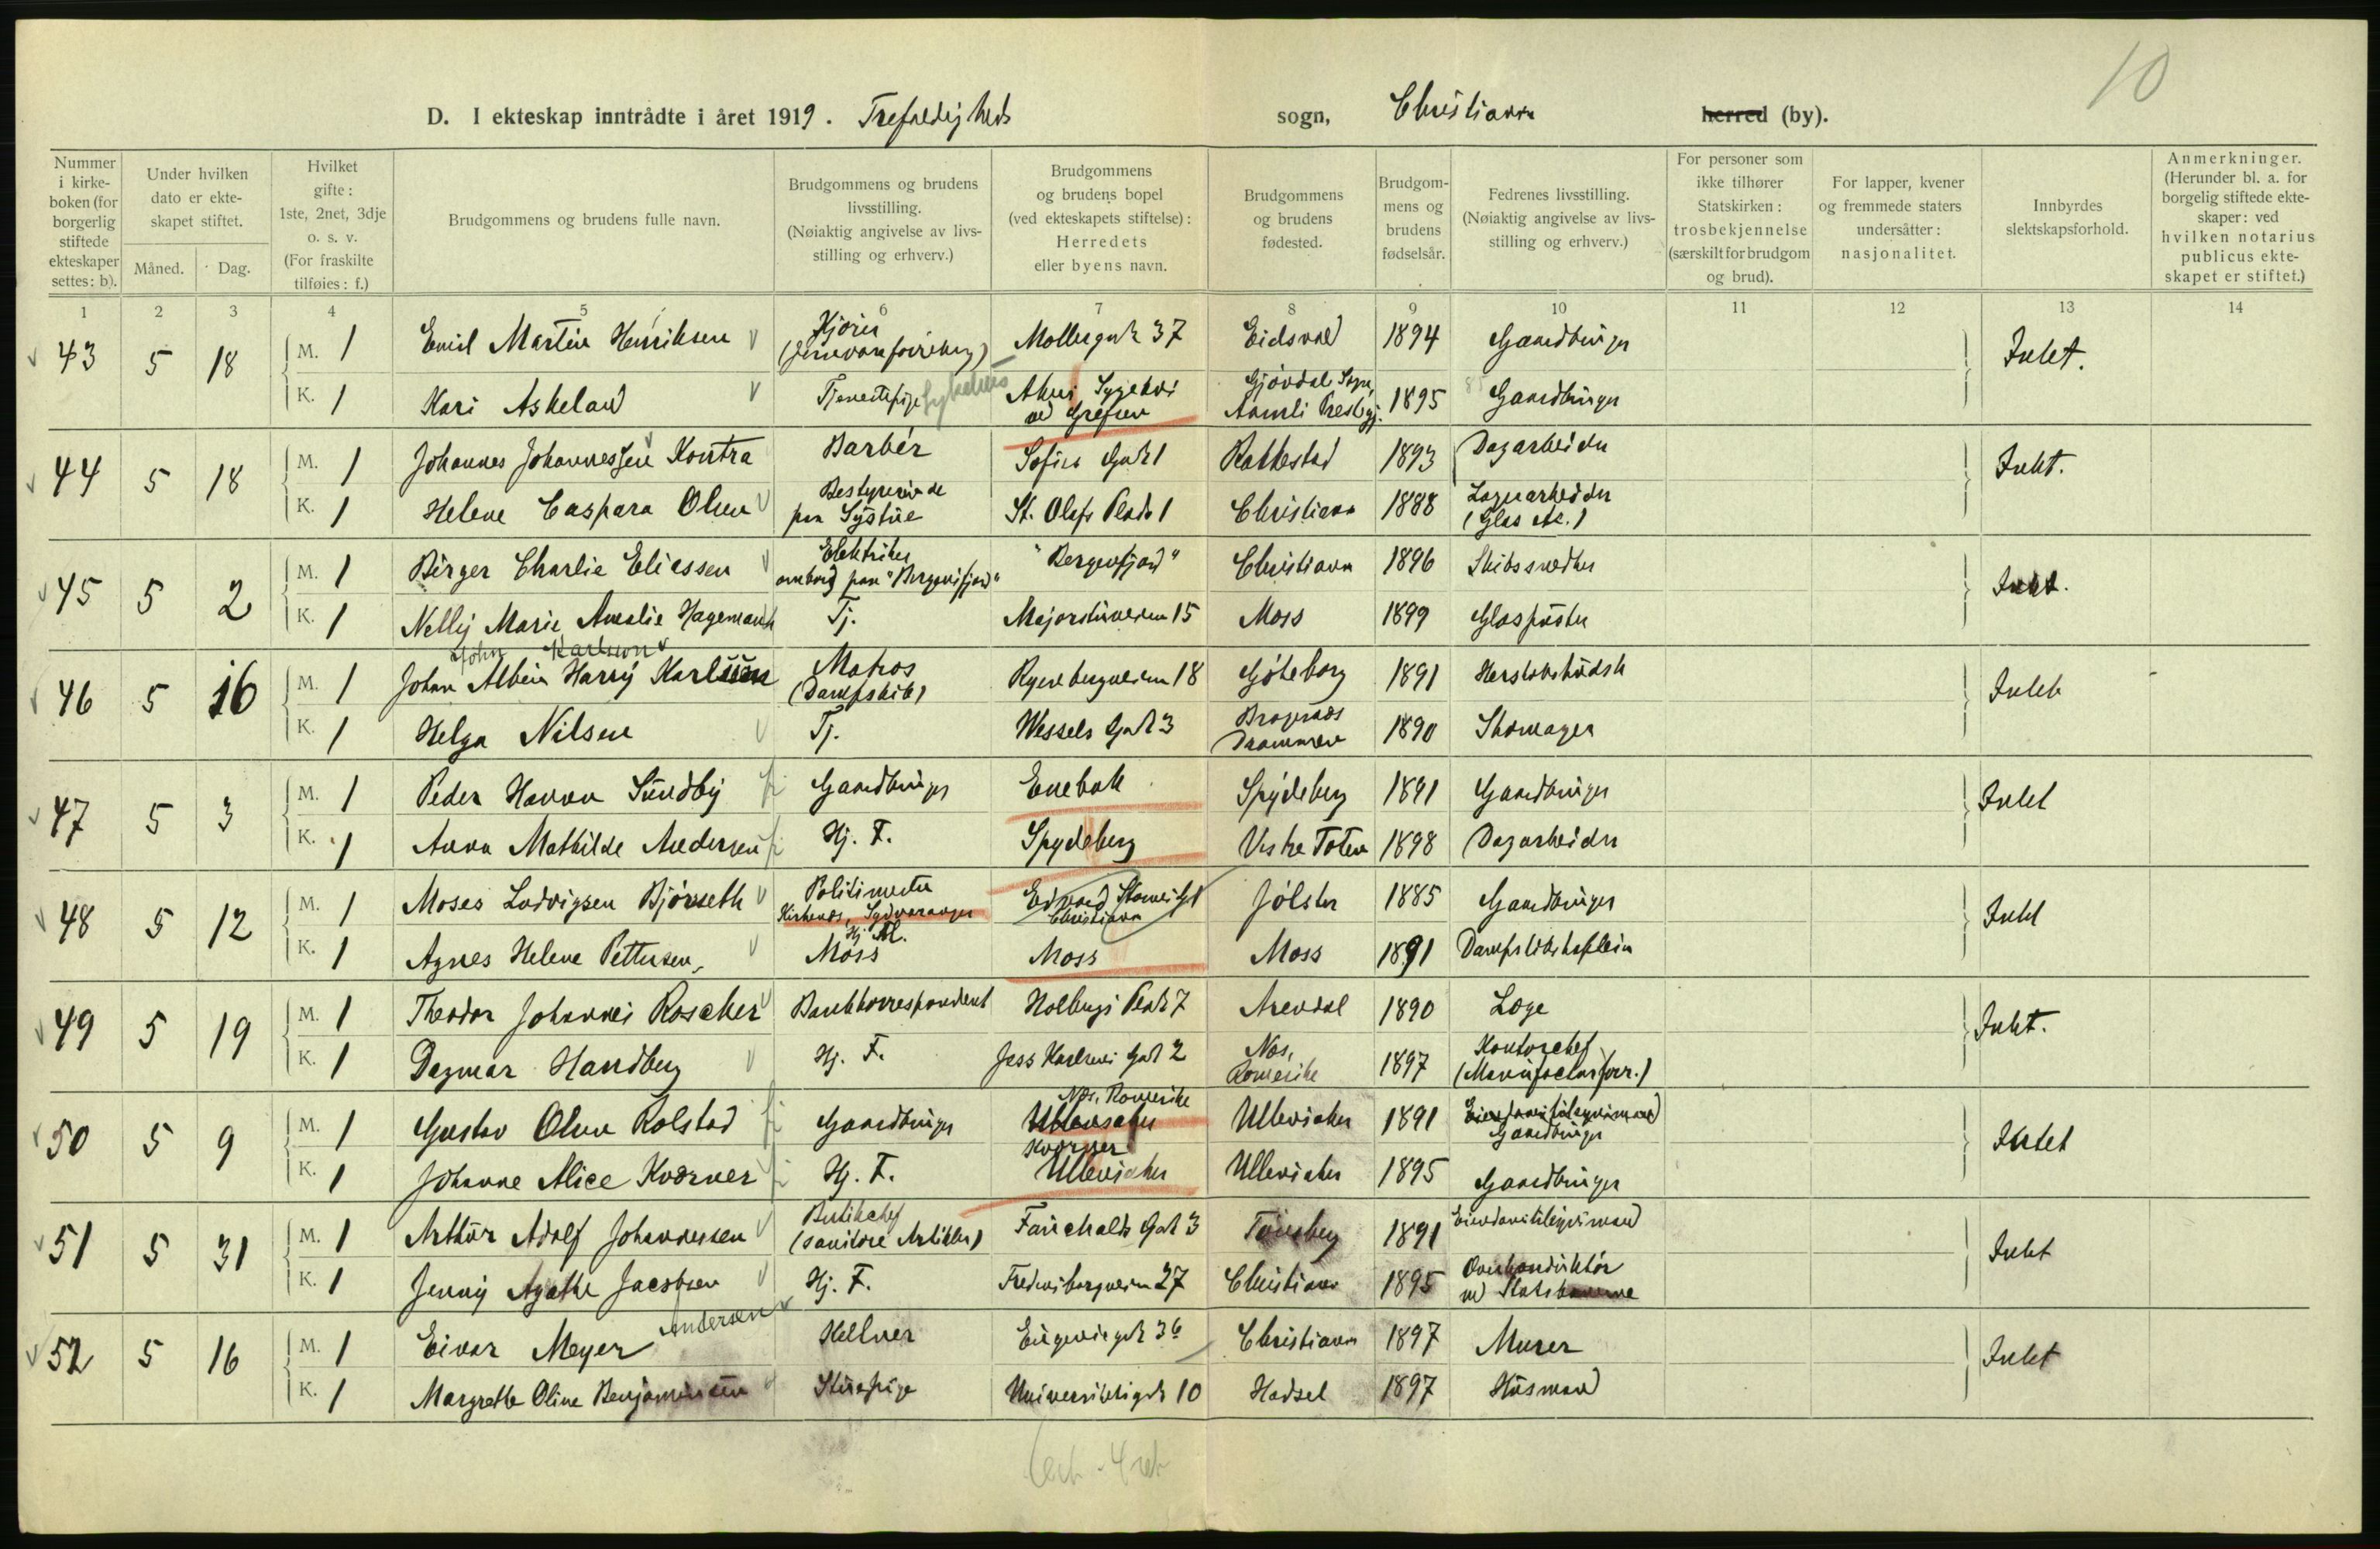 10
D. I ekteskap inntrådte i året 1919. Trefoldigheds sogn, Christiania herred (by).
Nummer i kirkeboken (for borgerlig stiftede ekteskaper settes: b).
Under hvilken dato er ekteskapet stiftet.
Måned. Dag.
Hvilket gifte: 1ste, 2net, 3dje o. s. v. (For fraskilte tilføies: f.)
Brudgommens og brudens fulle navn.
Brudgommens og brudens livsstilling. (Nøiaktig angivelse av livsstilling og erhverv.)
Brudgommens og brudens bopel (ved ekteskapets stiftelse): Herredets eller byens navn.
Brudgommens og brudens fødested.
Brudgommens og brudens fødselsår.
Fedrenes livsstilling. (Nøiaktig angivelse av livsstilling og erhverv.)
For personer som ikke tilhører Statskirken: trosbekjennelse (særskilt for brudgom og brud).
For lapper, kvener og fremmede staters undersåtter: nasjonalitet.
Innbyrdes slektskapsforhold.
Anmerkninger. (Herunder bl. a. for borgelig stiftede ekteskaper: ved hvilken notarius publicus ekteskapet er stiftet.)
1 2 3 4 5 6 7 8 9 10 11 12 13 14
43 5 18 M. 1 Emil Martin Henriksen Kjører Møllergade 37 Eidsvol 1894 Gaardbruger Intet.
K. 1 Kari Askeland Tjenestepige Sykehus Akers Sygehus ved Grefsen Gjøvdal Sogn, Aamli Prestegj. 1895 Gaardbruger
44 5 18 M. 1 Johannes Johannessen Kontra Barbér Sofies Gade 1 Rakkestad 1893 Dagarbeider Intet.
K. 1 Helene Caspara Olsen Bestyrerinde paa Systue St. Olafs Plads 1 Christiania 1888 Lagerarbeider (Glas etc.)
45 5 2 M. 1 Birger Charlie Eliassen Elektriker ombord paa "Bergensfjord" "Bergensfjord" Christiania 1896 Skibssnedker Intet.
K. 1 Nelly Marie Amalie Hagemann Tj. Majorstuveien 15 Moss 1899 Glaspuster
John Karlsson
46 5 16 M. 1 Johan Albin Harry Karlsson Matros (Dampskib) Ryenbergveien 18 Göteborg 1891 Intet
K. 1 Helga Nilsen Tj. Wessels Gade 3 Bragernes Drammen 1890 Skomager
47 5 3 M. 1 Peder Hannon Sundby Gaardbruger Enebak Spydeberg 1891 Gaardbruger Intet
K. 1 Anna Mathilde Andersen Hj. F. Spydeberg Vestre Toten 1898 Dagarbeider
48 5 12 M. 1 Moses Ludvigsen Bjørseth Politimester Kirkenes, Sydvaranger Edvard Stormsgt Christiania Jölster 1885 Gaardbruger Intet
K. 1 Agnes Helene Pettersen, Hj. M. Moss Moss Moss 1891 Dampskibskaptein
49 5 19 M. 1 Theodor Johannes Roscher Bankkorrespondent Holbergs Plads 7 Arendal 1890 Læge Intet.
K. 1 Dagmar Handberg Hj. F. Jess Karlsens Gade 2 Nes, Romerike 1897 Kontorchef (Manufacturforr.)
50 5 9 M. 1 Gustav Olsen Rolstad Gaardbruger Nes, Romerike Ullensaker Ullensaker 1891 Gaardbruger Intet
K. 1 Johanne Alice Kværner Hj. F. Kværner Ullensaker Ullensaker 1895 Gaardbruger
51 5 31 M. 1 Arthur Adolf Johannesen Butikchef (sanitære Artikler) Fauchalds Gade 3 Tönsberg 1891 Intet
K. 1 Jenny Agathe Jacobsen Hj. F. Fredensborgveien 27 Christiania 1895 Overkonduktör ved Statsbanerne
52 5 16 M. 1 Einar Meyer Andersen Kellner Eugenies gade 36 Christiania 1897 Murer Intet
K. 1 Margrethe Oline Benjaminsen Stuepige Universitetsgade 10 Hadsel 1897 Husmand